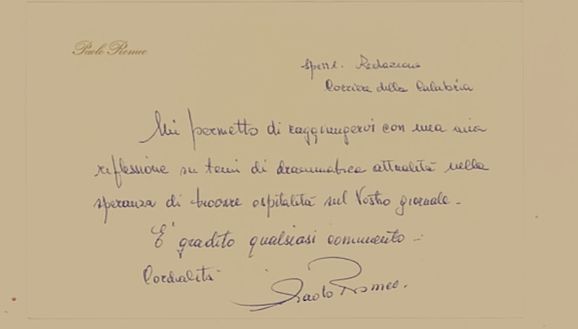 Paolo Romeo
Spett. Redazione
Corriere della Calabria
Mi permetto di raggiungervi con una mia
riflessione su temi di drammatica attualità nella
speranza di trovare ospitalità sul Vostro giornale.
E' gradito qualsiasi commento.
Cordialità
Paolo Romeo.